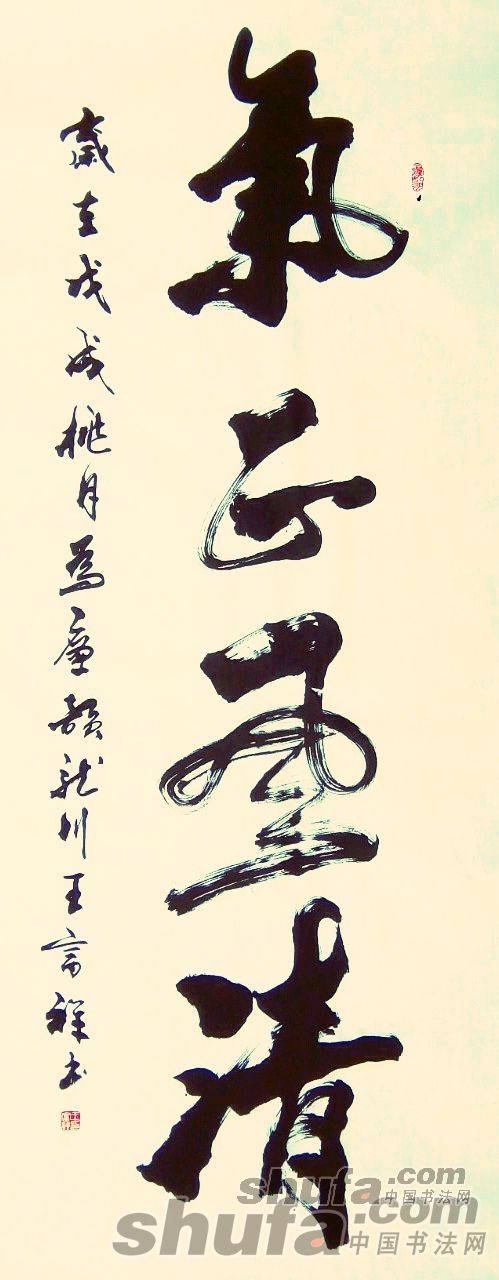 氣正風清
歲在戊戌桃月為廉韻龍川王富祥書
shufa.com
中国书法网
shufa.com
中国书法网